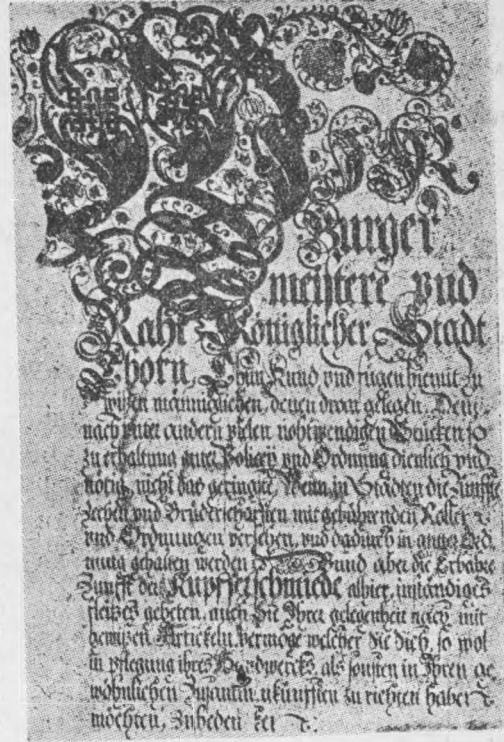 WIR
Burger
meistere vnd
Raht Königlicher Stadt
Thorn, Thun Kund vnd fügen hiemit zu
wißen männiglichen, denen dran gelegen, Dem
nach vnter andern vielen nohtwendigen Stücken so
zu erhaltung guter Policey vnd Ordnung dienlich vnd
nötig, nicht das geringste, Wenn in Städten die Zünffte
Zechen vnd Brüderschafften mit gebührenden Rollen
vnd Ordnungen versehen, vnd dadurch in guter Ord
nung gehalten werden Vnd aber die Erbahre
Zunfft der Kupfferschmiede alhier, inständiges
fleißes gebeten, auch Sie Ihrer gelegenheit nach mit
gewißen Artickeln, vermöge welcher Sie sich, so wol
in pflegung ihres Handwercks, als sonsten in Ihren ge
wöhnlichen Zusammenkünfften zu richten haben
möchten,